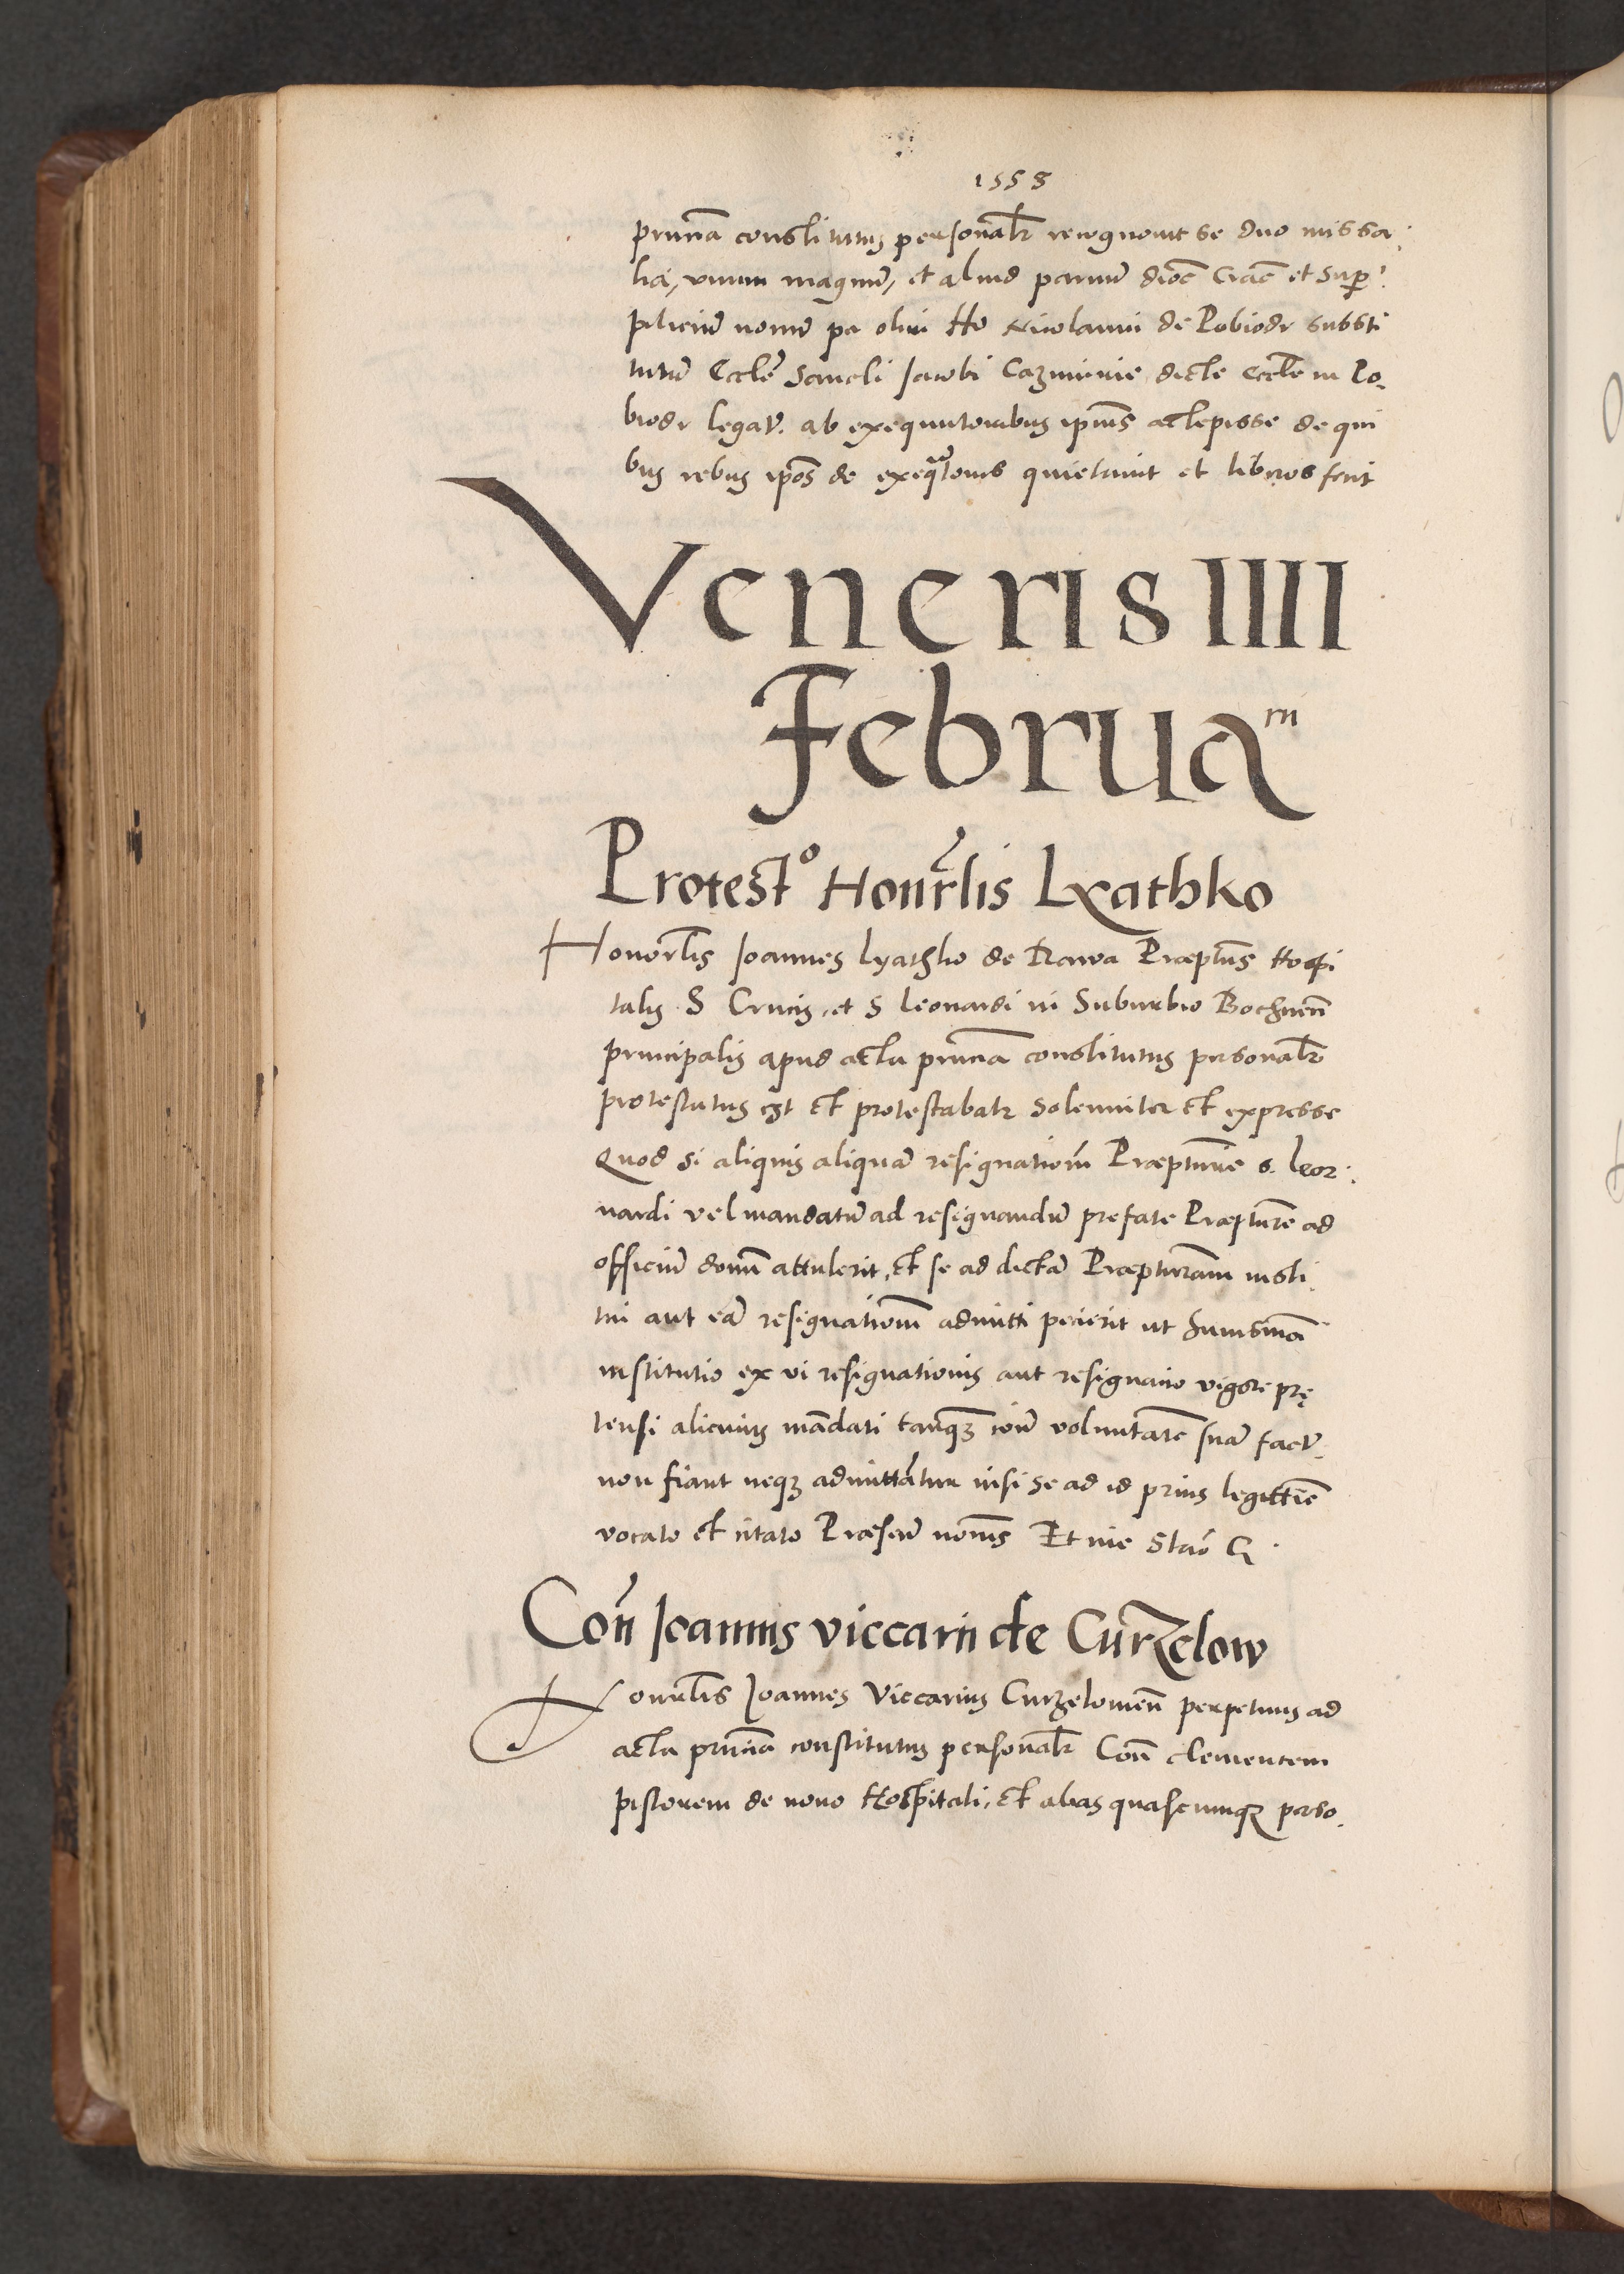 1558
prñciã constitutus personalr̃ recognouit se duo missa
lia, vnum magnũ, et aliud paruũ dioc̃ Crac̃ et Sup
pliciũ nouũ pa olim Ho Nicolaum de Pobiodr substi
tutũ Eccle͂ Sancti Jacobi Cazmirie dicte eccle͂ in Po
biodr legat͂. ab exequutoribus ipius̃ accepisse de qui
bus rebus ip̃os de exeq̃tores quietauit et liberos fecit
Veneris IIII
Februarii
Protest° Honor̃lis Lyathko
Honor̃lis Joannes Lyathko de Rawa Præptus̃ Hospi
talis S Crucis, et S Leonardi in Suburbio Bochnen̄
principalis apud acta prñciã constitutus personalr̃
protestatus est et protestabatr solenniter et expresse
Quod si aliquis aliquã resignationẽ Præpturæ s. Leor
nardi vel mandatũ ad resignandũ prefate Præpture̅ ad
officiũ domī attulerit, et se ad dictã Præpturam insti
tui aut eã resignationem̄ admitti pecierit ut huiusmōi
institutio ex vi resignationis aut resignatio vigore prę
tensi alicuius mãdati tanq̃ʒ cont͂ voluntatẽ suã fact͂
non fiant neqʒ admittãtur nisi se ad id prius legittīe
vocato et citato Præsertī nomīs Et me Stañ G
Coñ Joannis viccarii de Curzelow
Honorlis Joannes Viccarius Curzelouien̄ perpetuus ad
acta prñciã constitutus personalr̃ Coñ clementem
pistorem de nouo Hospitali, et alias quascumqʒ perso